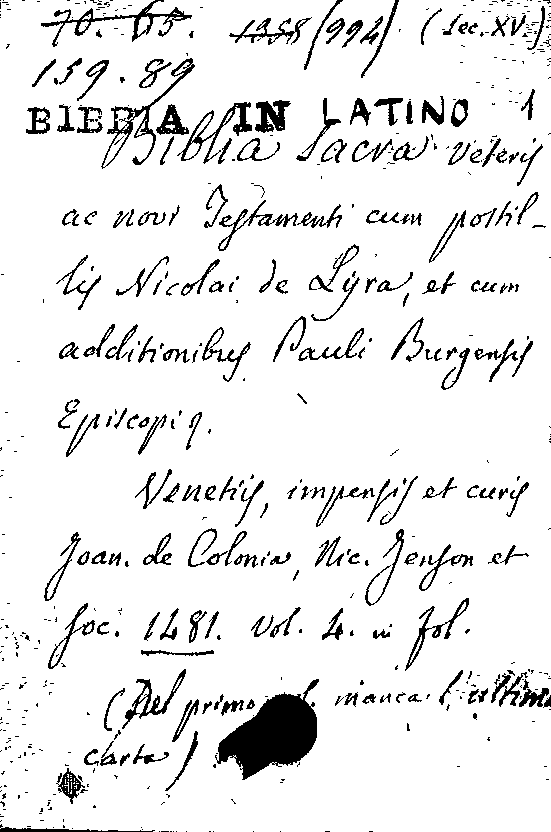 70. 65. 1358 (994) (Sec. XV.)
159.89
BIBBIA IN LATINO 1
Biblia Sacra veteris
ac novi Testamenti cum postil-
lis Nicolai de Lyra, et cum
additionibus Pauli Burgensis
Episcopi
Venetiis, impensis et curis
Joan. de Colonia, Nic. Jenson et
Soc. 1481. Vol. 4. in fol.
(Del primo manca l'ultima
carta)